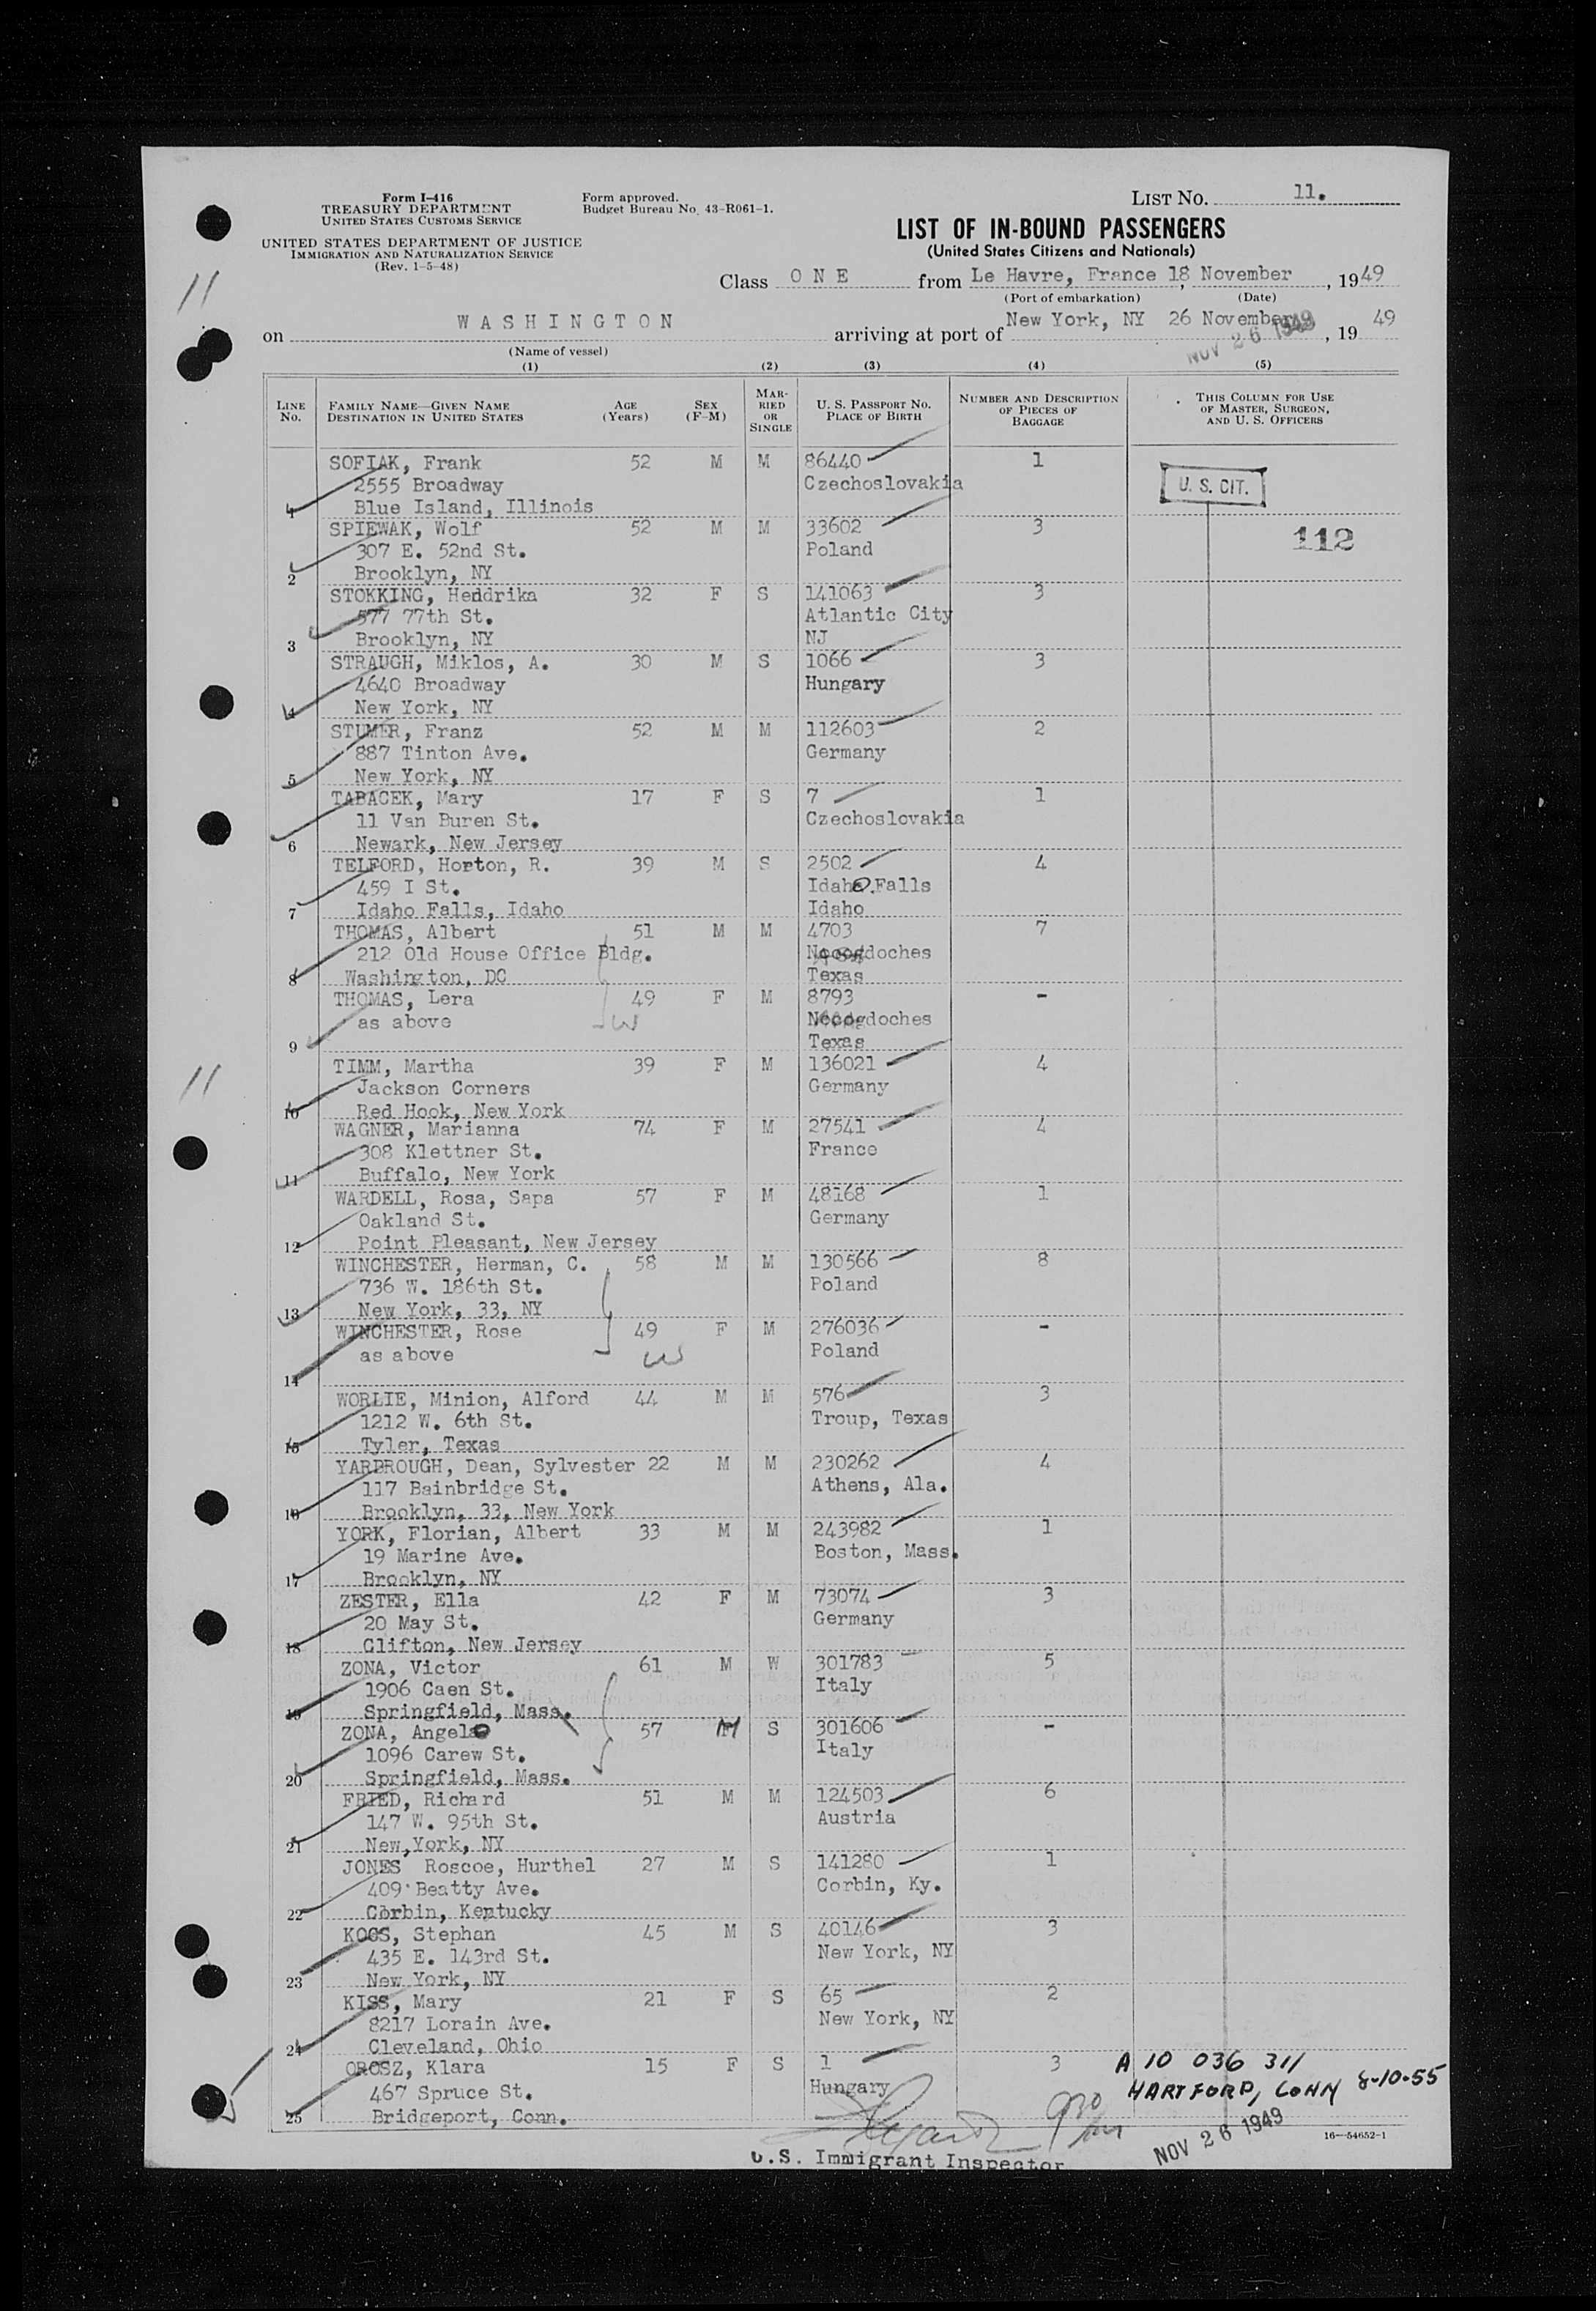 Form I-416
TREASURY DEPARTMENT
UNITED STATES CUSTOMS SERVICE
UNITED STATES DEPARTMENT OF JUSTICE
IMMIGRATION AND NATURALIZATION SERVICE
(Rev. 1-5-48)
Form approved.
Budget Bureau No. 43-R061-1.
LIST NO. 11.
LIST OF IN-BOUND PASSENGERS
(United States Citizens and Nationals)
11
Class O N E from Le Havre, France 18 November, 1949
(Port of embarkation) (Date)
on W A S H I N G T O N arriving at port of New York, NY 26 November, 19 49
(Name of vessel)
NOV 26 1949
(1) (2) (3) (4) (5)
LINE NO. FAMILY NAME—GIVEN NAME DESTINATION IN UNITED STATES AGE (Years) SEX (F-M) MARRIED OR SINGLE U. S. PASSPORT NO. PLACE OF BIRTH NUMBER AND DESCRIPTION OF PIECES OF BAGGAGE THIS COLUMN FOR USE OF MASTER, SURGEON, AND U. S. OFFICERS
SOFIAK, Frank 52 M M 86440 1
2555 Broadway Czechoslovakia U. S. CIT.
1 Blue Island, Illinois
SPIEWAK, Wolf 52 M M 33602 3 112
307 E. 52nd St. Poland
2 Brooklyn, NY
STOKKING, Hendrika 32 F S 141063 3
577 77th St. Atlantic City
3 Brooklyn, NY NJ
STRAUGH, Miklos, A. 30 M S 1066 3
4640 Broadway Hungary
4 New York, NY
STUMER, Franz 52 M M 112603 2
887 Tinton Ave. Germany
5 New York, NY
TABACEK, Mary 17 F S 7 1
11 Van Buren St. Czechoslovakia
6 Newark, New Jersey
TELFORD, Horton, R. 39 M S 2502 4
459 I St. Idaho Falls
7 Idaho Falls, Idaho Idaho
THOMAS, Albert 51 M M 4703 7
212 Old House Office Bldg. Nacogdoches
8 Washington, DC Texas
THOMAS, Lera 49 F M 8793 -
as above W Nacogdoches
9 Texas
TIMM, Martha 39 F M 136021 4
11 Jackson Corners Germany
10 Red Hook, New York
WAGNER, Marianna 74 F M 27541 4
308 Klettner St. France
11 Buffalo, New York
WARDELL, Rosa, Sapa 57 F M 48168 1
Oakland St. Germany
12 Point Pleasant, New Jersey
WINCHESTER, Herman, C. 58 M M 130566 8
736 W. 186th St. Poland
13 New York, 33, NY
WINCHESTER, Rose 49 F M 276036 -
as above W Poland
14
WORLIE, Minion, Alford 44 M M 576 3
1212 W. 6th St. Troup, Texas
15 Tyler, Texas
YARBROUGH, Dean, Sylvester 22 M M 230262 4
117 Bainbridge St. Athens, Ala.
16 Brooklyn, 33, New York
YORK, Florian, Albert 33 M M 243982 1
19 Marine Ave. Boston, Mass.
17 Brooklyn, NY
ZESTER, Ella 42 F M 73074 3
20 May St. Germany
18 Clifton, New Jersey
ZONA, Victor 61 M W 301783 5
1906 Caen St. Italy
19 Springfield, Mass.
ZONA, Angelo 57 M S 301606 -
1096 Carew St. Italy
20 Springfield, Mass.
FRIED, Richard 51 M M 124503 6
147 W. 95th St. Austria
21 New York, NY
JONES Roscoe, Hurthel 27 M S 141280 1
409 Beatty Ave. Corbin, Ky.
22 Corbin, Kentucky
KOOS, Stephan 45 M S 40146 3
435 E. 143rd St. New York, NY
23 New York, NY
KISS, Mary 21 F S 65 2
8217 Lorain Ave. New York, NY
24 Cleveland, Ohio
OROSZ, Klara 15 F S 1 3 A 10 036 311
467 Spruce St. Hungary HARTFORD, CONN 8-10-55
25 Bridgeport, Conn.
NOV 26 1949 16—54652-1
U.S. Immigrant Inspector